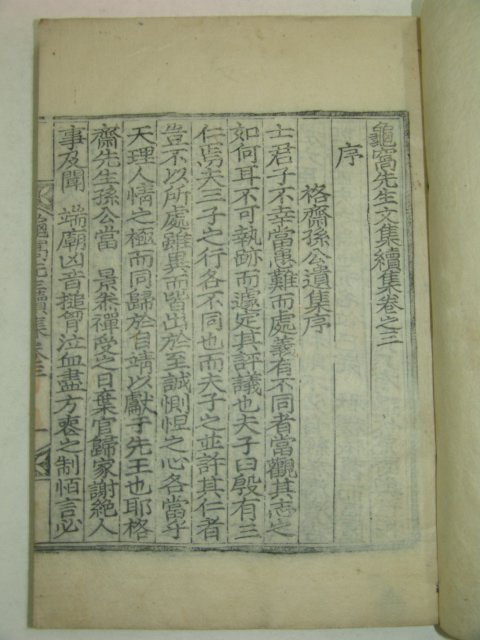 龜窩先生文集續集卷之三
序
格齋孫公遺集序
士君子不幸當患難而處義有不同者當觀其志之
如何耳不可執跡而遽定其評議也夫子曰殷有三
仁焉夫三子之行各不同也而夫子之並許其仁者
豈不以所處雖異而皆出於至誠惻怛之心各當乎
天理人情之極而同歸於自靖以獻于先王也耶格
齋先生孫公當 景泰禪受之日棄官歸家謝絶人
事及聞 端廟凶音搥胷泣血盡方喪之制恒言必
龜窩先生續集卷三